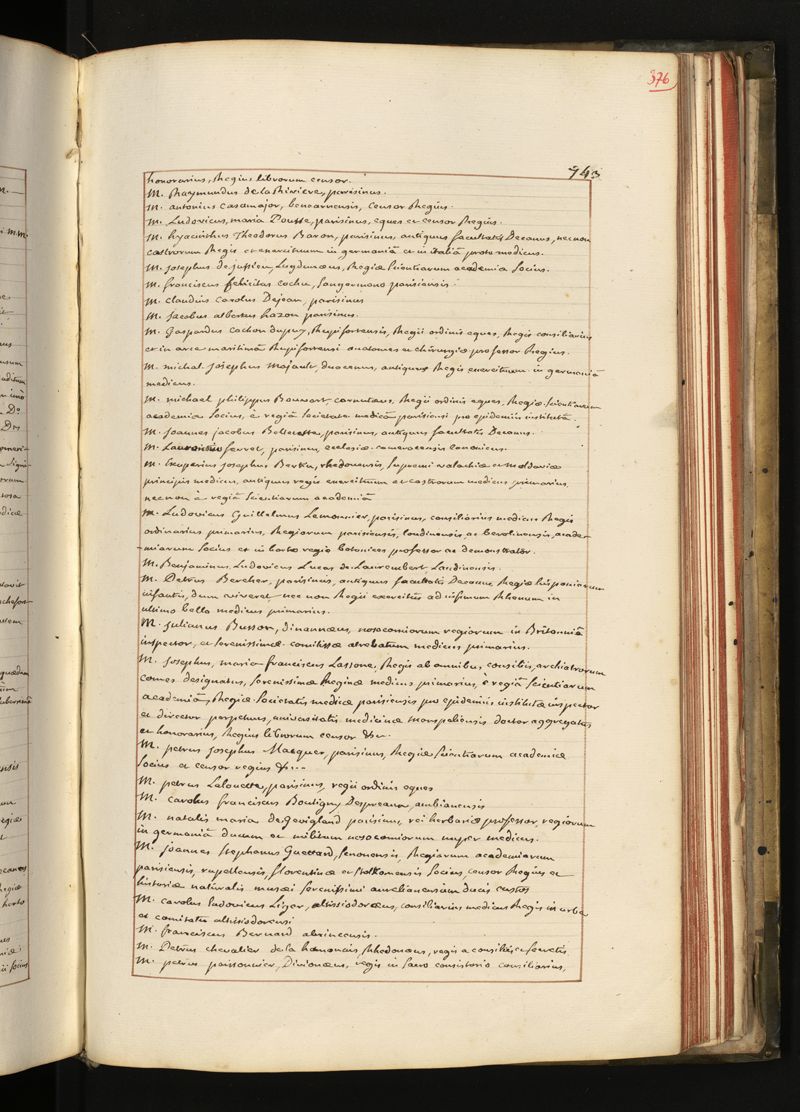 376
743
honorarius, Regius librorum censor.
M. Raymundus de la Riviere, parisinus.
M. antonius casamajor, benearnensis, censor Regius.
M. Ludovicus, maria Pousse, parisinus, eques et censor Regius.
M. hyacinthus Theodorus Baron, parisinus, antiquus facultatis Decanus, nec non
castrorum Regis et exercituum in germaniâ et in italiâ proto medicus.
M. Josephus de jussieu, Lugdunaeus, Regiae scientiarum academiae Socius.
M. franciscus felicitas cochu, Sangermano parisiensis.
M. claudius carolus Dejean, parisinus
M. Jacobus albertus hazon parisinus.
M. Gaspardus cachon dupuy, Rupifortensis, Regii ordinis eques, Regis consiliarius
et in arce maritimâ Rupifortensi anatomes et chirurgiae professor Regius.
M. michal Josephus Majault, duacenus, antiquus Regis exercituum in germaniâ
medicus.
M. michael philippus Bouvart carnutaeus, Regii ordinis eques, Regiae Scientiarum
academiae Socius, è regiâ societate medicâ parisiensi pro epidemiis institutâ
M. Joannes jacobus Belleteste, parisinus, antiquus facultatis Decanus.
M. Laurentius ferret, parisinus, ecclesiae cameracensis canonicus.
M. Exuperius Josephus Bertin, rhedonensis, Supremi valachiae et moldaviae
principis medicus, antiquus regis exercituum et castrorum medicus primarius,
nec non è regiâ Scientiarum academiâ
M. Ludovicus Guillelmus Lemonnier, parisinus, consiliarius medicus Regis
ordinarius primarius, Regiarum parisiensis, londinensis, ac berolinensis, acade-
-miarum Socius et in horto regio botanices professor ac demonstrator.
M. Benjaminus Ludovicus Lucas de Lauremberg, Laudinensis.
M. Petrus Bercher, parisinus, antiquus facultatis Decanus, Regiae hispaniarum
infantis, dum viveret nec non Regii exercitûs ad infimum Rhenum in
ultimo bello medicus primarius.
M. Julianus Busson, dinannaeus, nosocomiorum regiorum in Britanniâ
inspector, et Serenissimae comitissae atrebatum medicus primarius.
M. Josephus, maria franciscus Lassone, Regis ab omnibus consiliis, archiatrorum
comes designatus, Serenissimae Reginae medicus primarius, è regiâ Scientiarum
academiâ, Regiae Societatis medicae parisiensis pro epidemiis institutae inspector
et director perpetuus, universitatis medicinae monspeliensis doctor aggregatus
et honorarius, Regius librorum censor &c.
M. petrus Josephus Macquer, parisinus, Regiae Scientiarum academiae
Socius et censor regius &c...
M. petrus Lalouette, parisinus, regii ordinis eques
M. carolus franciscus Boutigny Despreaux, ambianensis
M. natalis maria de Gevigland parisinus, rei herbariae professor, regiorum
in germaniâ ducum et militum nosocomiorum nuper medicus.
M. Joannes Stephanus Guettard, Senonensis, Regiarum academiarum
parisiensis, rupellensis, florentinae et Stokonensis Socius, censor Regius et
historiae naturalis musaei Serenissimi aurelianensium ducis custos
M. carolus ludovicus Liger, altissiodoraeus, consiliarius medicus Regis in urbe
et comitatu altissiodorensi
M. franciscus Bernard abrincensis.
M. Petrus chevalier de la Rhedonaeus, regis a consiliis et Secretis
M. petrus poissonnier, Divionaeus, regis in Sacro consistorio consiliarius,